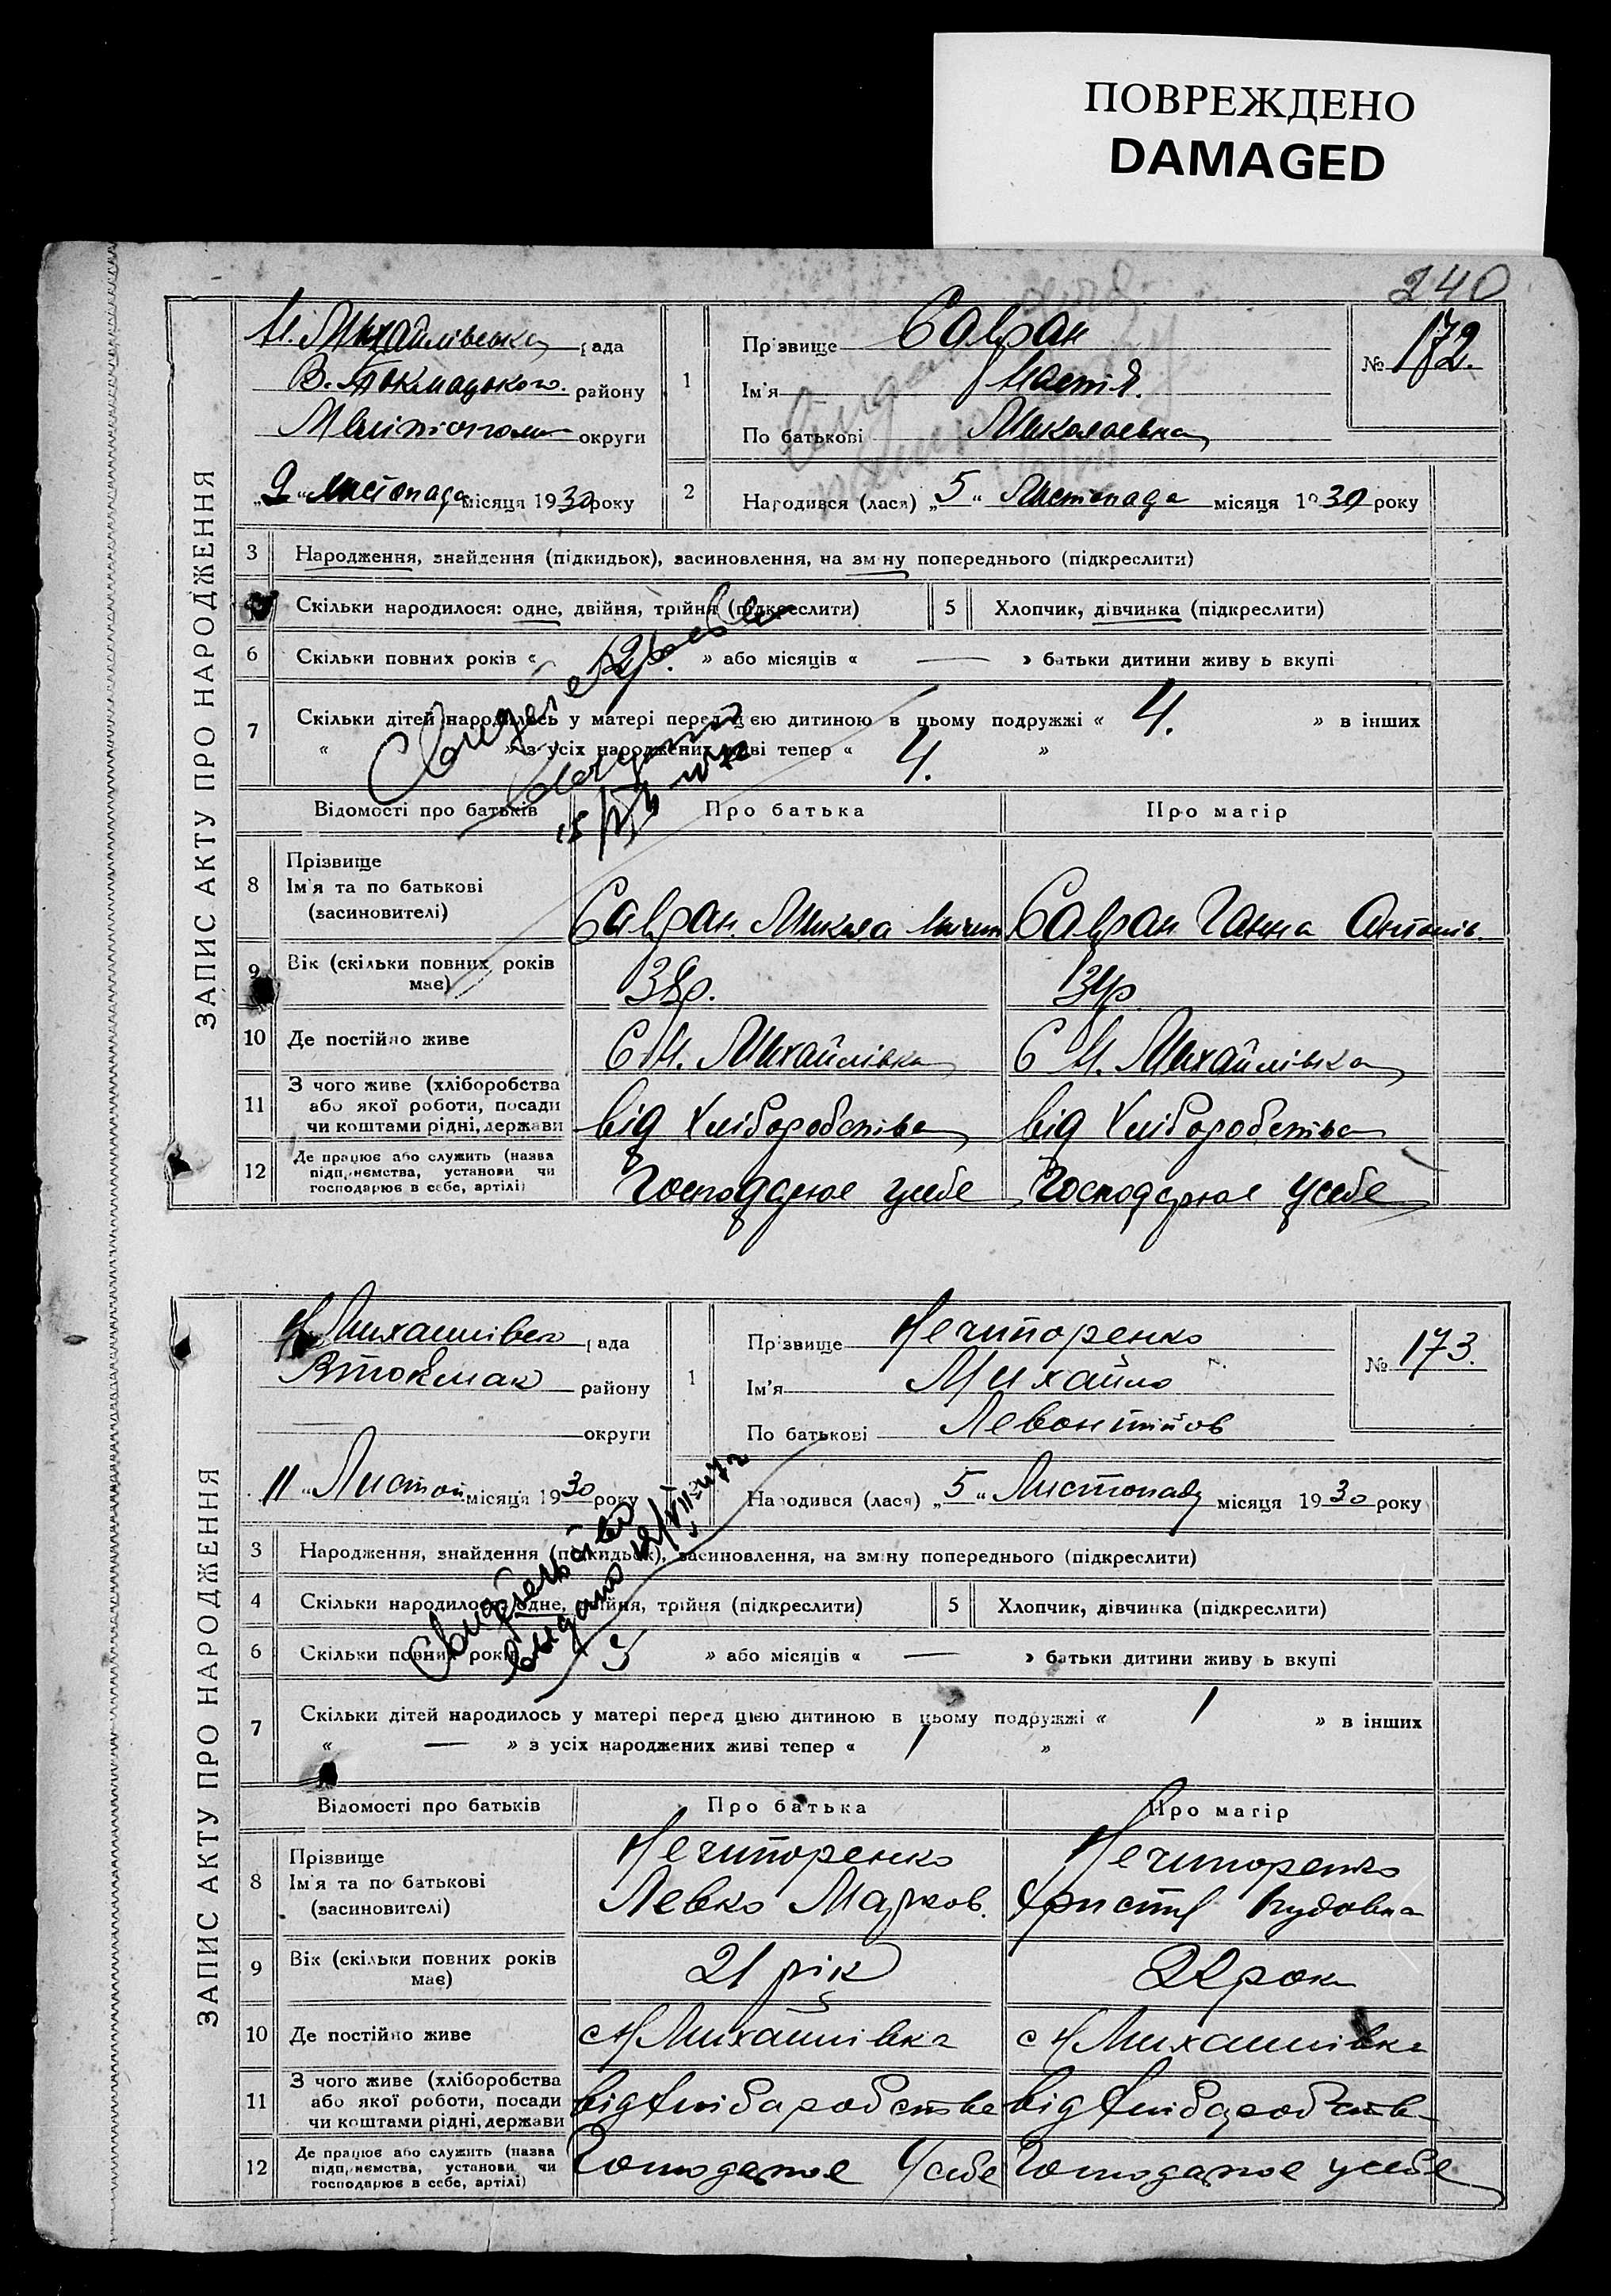 ПОВРЕЖДЕНО
DAMAGED
240
ЗАПИС АКТУ ПРО НАРОДЖЕННЯ
Н. Михайлівська рада
В. Токмацького району
округи
9 Листопада місяця 1930 року
1
Прізвище Савран
Ім'я Настя
По батькові Миколаевна
№ 172.
2
Народився (лася) „5“ Листопада місяця 1930 року
3 Народження, знайдення (підкидьок), засиновлення, на зміну попереднього (підкреслити)
4 Скільки народилося: одне, двійня, трійня (підкреслити)
5 Хлопчик, дівчинка (підкреслити)
6 Скільки повних років « 12р. » або місяців « — » батьки дитини живуть вкупі
7 Скільки дітей народилось у матері перед цією дитиною в цьому подружжі « 4. » в інших
« » з усіх народжених живі тепер « 4. »
Відомості про батьків Про батька Про матір
8 Прізвище
Ім'я та по батькові
(засиновителі)
Савран Микола Савран Ганна Антонів.
9 Вік (скільки повних років має)
38р. 34р
10 Де постійно живе
С Н. Михайлівка С Н. Михайлівка
11 З чого живе (хліборобства
або якої роботи, посади
чи коштами рідні, держави
від хліборобства від хліборобства
12 Де працює або служить (назва
підприємства, установи чи
господарює в себе, артілі)
Господарює усебе Господарює усебе
ЗАПИС АКТУ ПРО НАРОДЖЕННЯ
Н Михайлівсь рада
Втокмак району
округи
11 Листоп місяця 1930 року
1
Прізвище Нечипоренко
Ім'я Михайло
По батькові Левонтійов
№ 173.
2
Народився (лася) „5“ Листопаду місяця 1930 року
Свидетельство
выдано
3 Народження, знайдення (підкидьок), засиновлення, на зміну попереднього (підкреслити)
4 Скільки народилося: одне, двійня, трійня (підкреслити)
5 Хлопчик, дівчинка (підкреслити)
6 Скільки повних років 3 » або місяців « — » батьки дитини живуть вкупі
7 Скільки дітей народилось у матері перед цією дитиною в цьому подружжі « 1 » в інших
« — » з усіх народжених живі тепер « 1 »
Відомості про батьків Про батька Про матір
8 Прізвище
Ім'я та по батькові
(засиновителі)
Нечипоренко Нечипоренко
Левко Марков. Христя
9 Вік (скільки повних років має)
21 рік 22 рок
10 Де постійно живе
с Н Михайлівка с Н Михайлівка
11 З чого живе (хліборобства
або якої роботи, посади
чи коштами рідні, держави
від хлібаробства від хлібаробств
12 Де працює або служить (назва
підприємства, установи чи
господарює в себе, артілі)
Господарює Усебе Господарює усебе